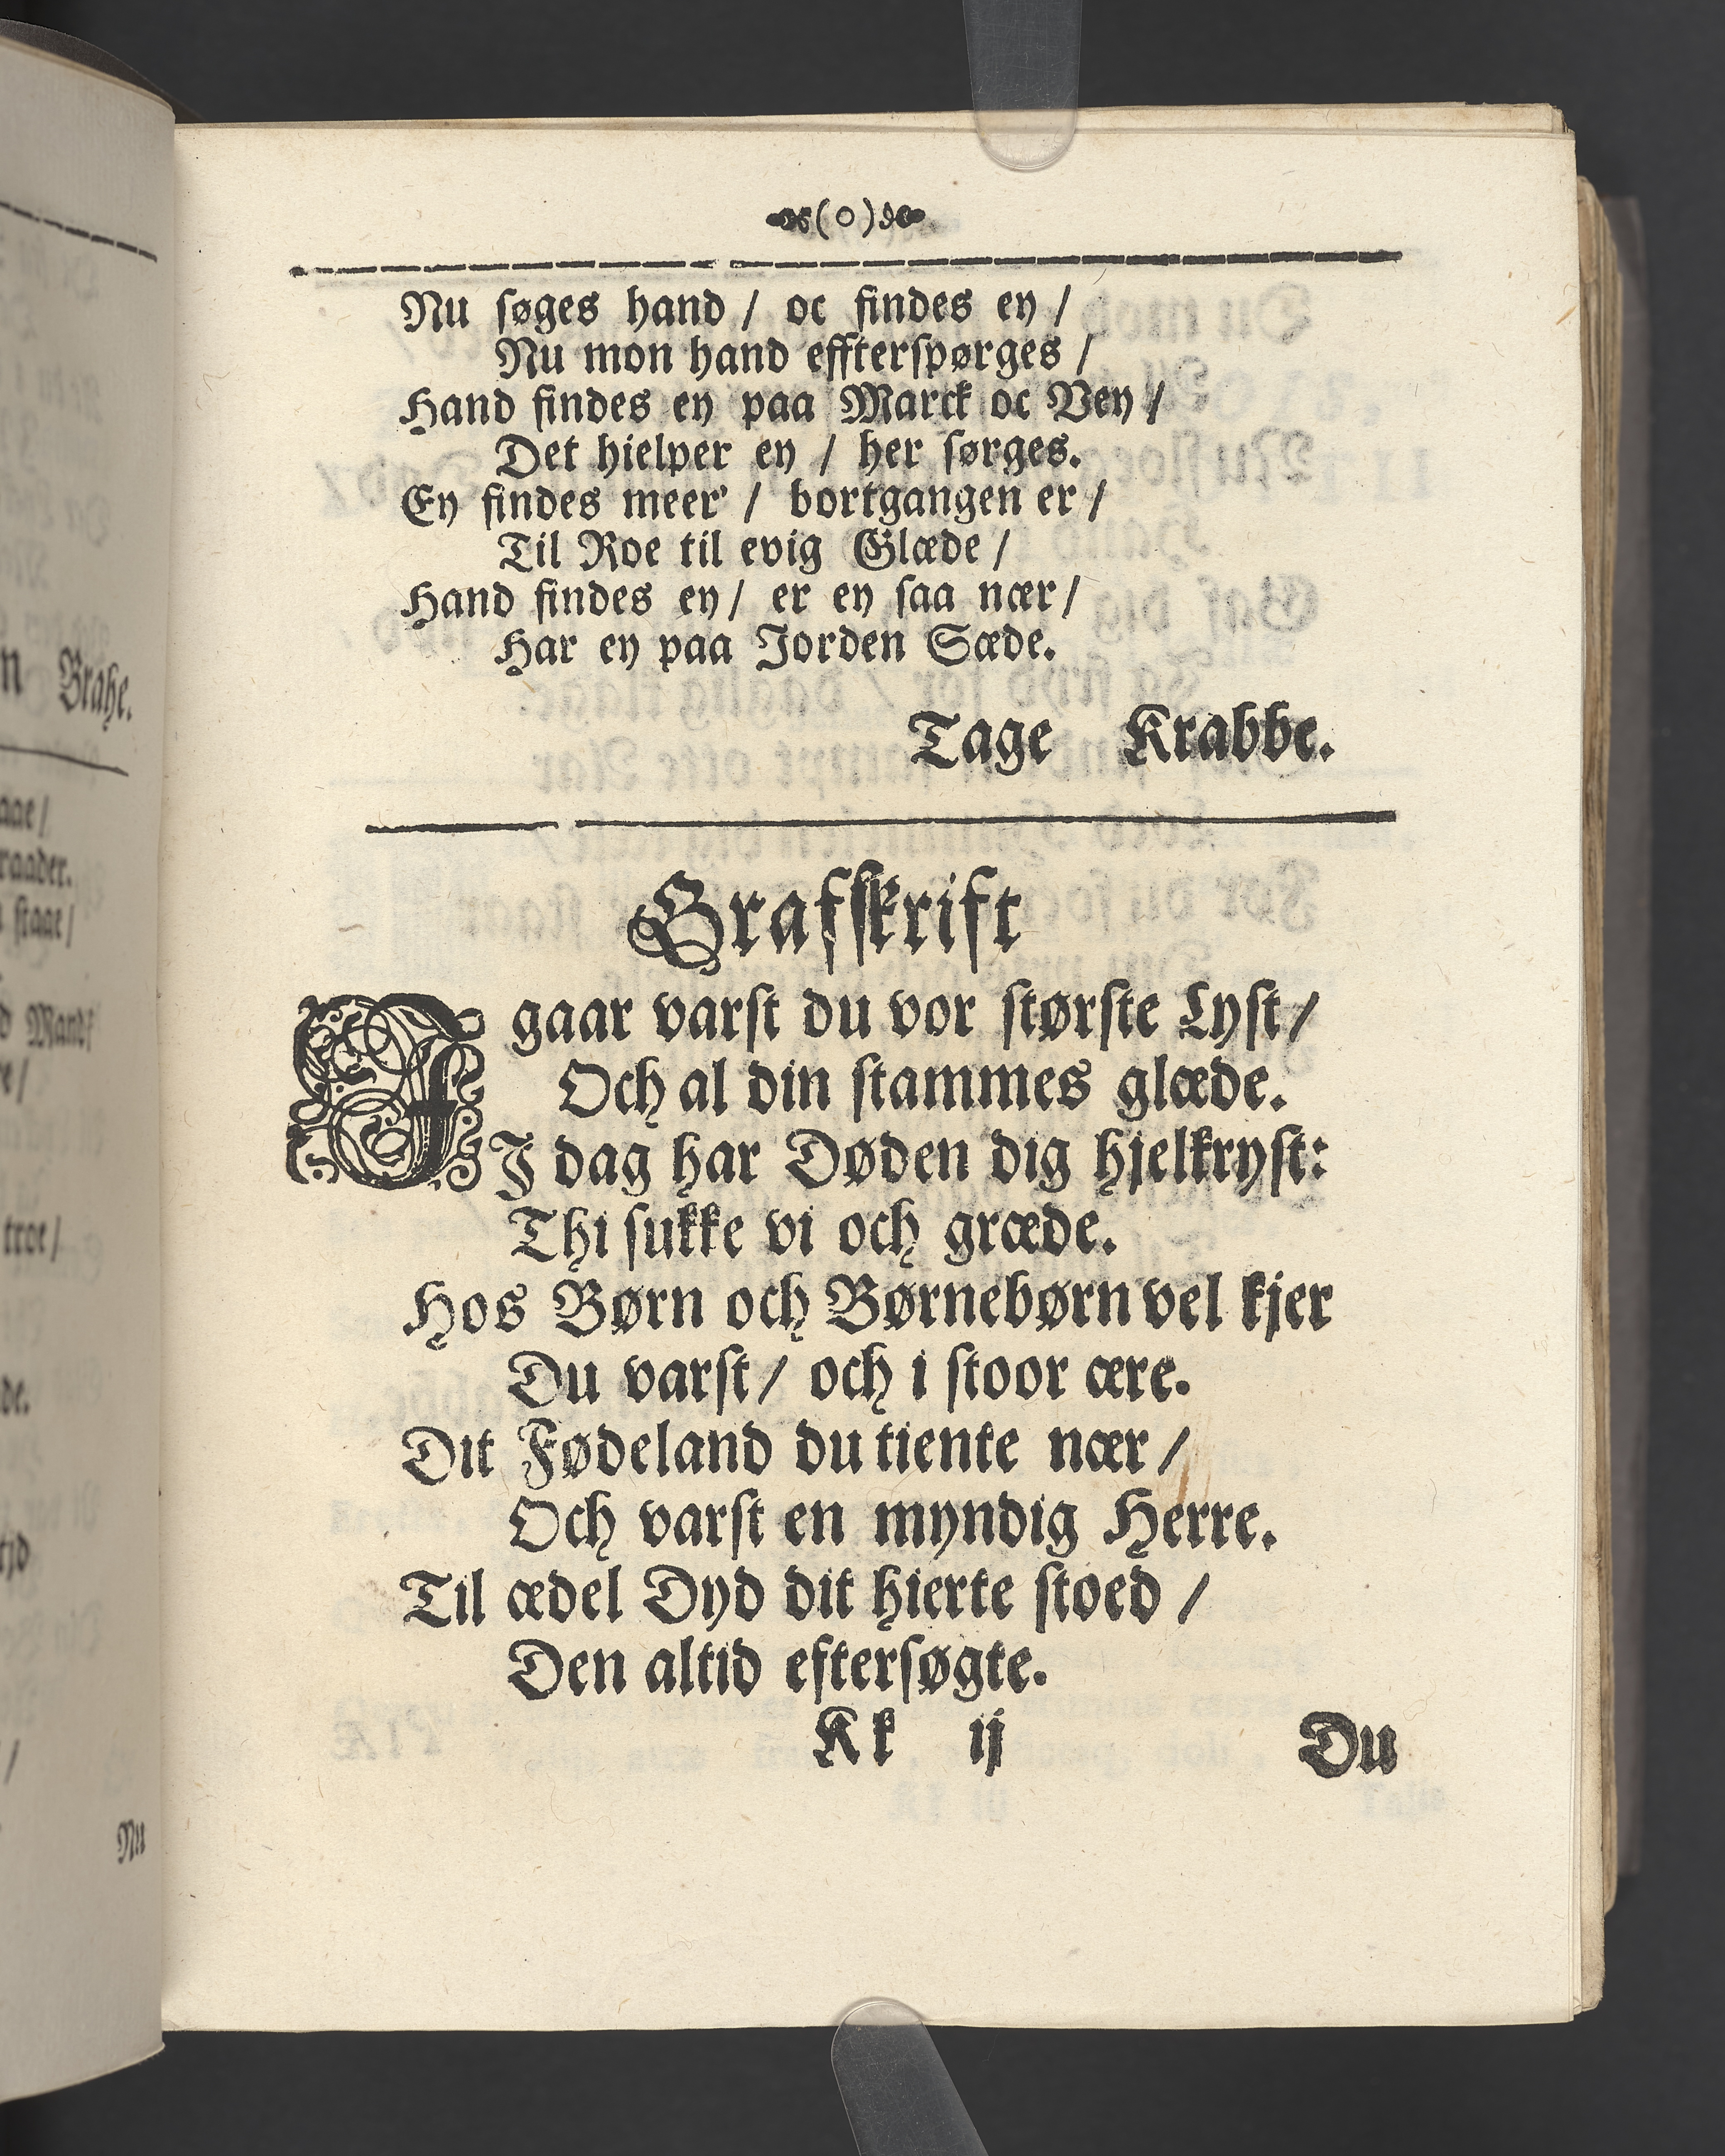 (o)
Nu ſøges hand / oc findes ey /
Nu mon hand effterſpørges /
Hand findes ey paa Marck oc Vey /
Det hielper ey / her ſørges.
Ey findes meer' / bortgangen er /
Til Roe til evig Glæde /
Hand findes ey / er ey ſaa nær /
Har ey paa Jorden Sæde.
Tage Krabbe.
Grafſkrift
I gaar varſt du vor ſtørſte Lyſt /
Och al din ſtammes glæde.
I dag har Døden dig hjelkryſt:
Thi ſukke vi och græde.
Hos Børn och Børnebørn vel kjer
Du varſt / och i ſtoor ære.
Dit Fødeland du tiente nær /
Och varſt en myndig Herre.
Til ædel Dyd dit hierte ſtoed /
Den altid efterſøgte.
Kk ij Du
n Brahe.
aae /
raader.
ſtaae /
d Mand
e /
troe /
de.
tjd
/
Nu